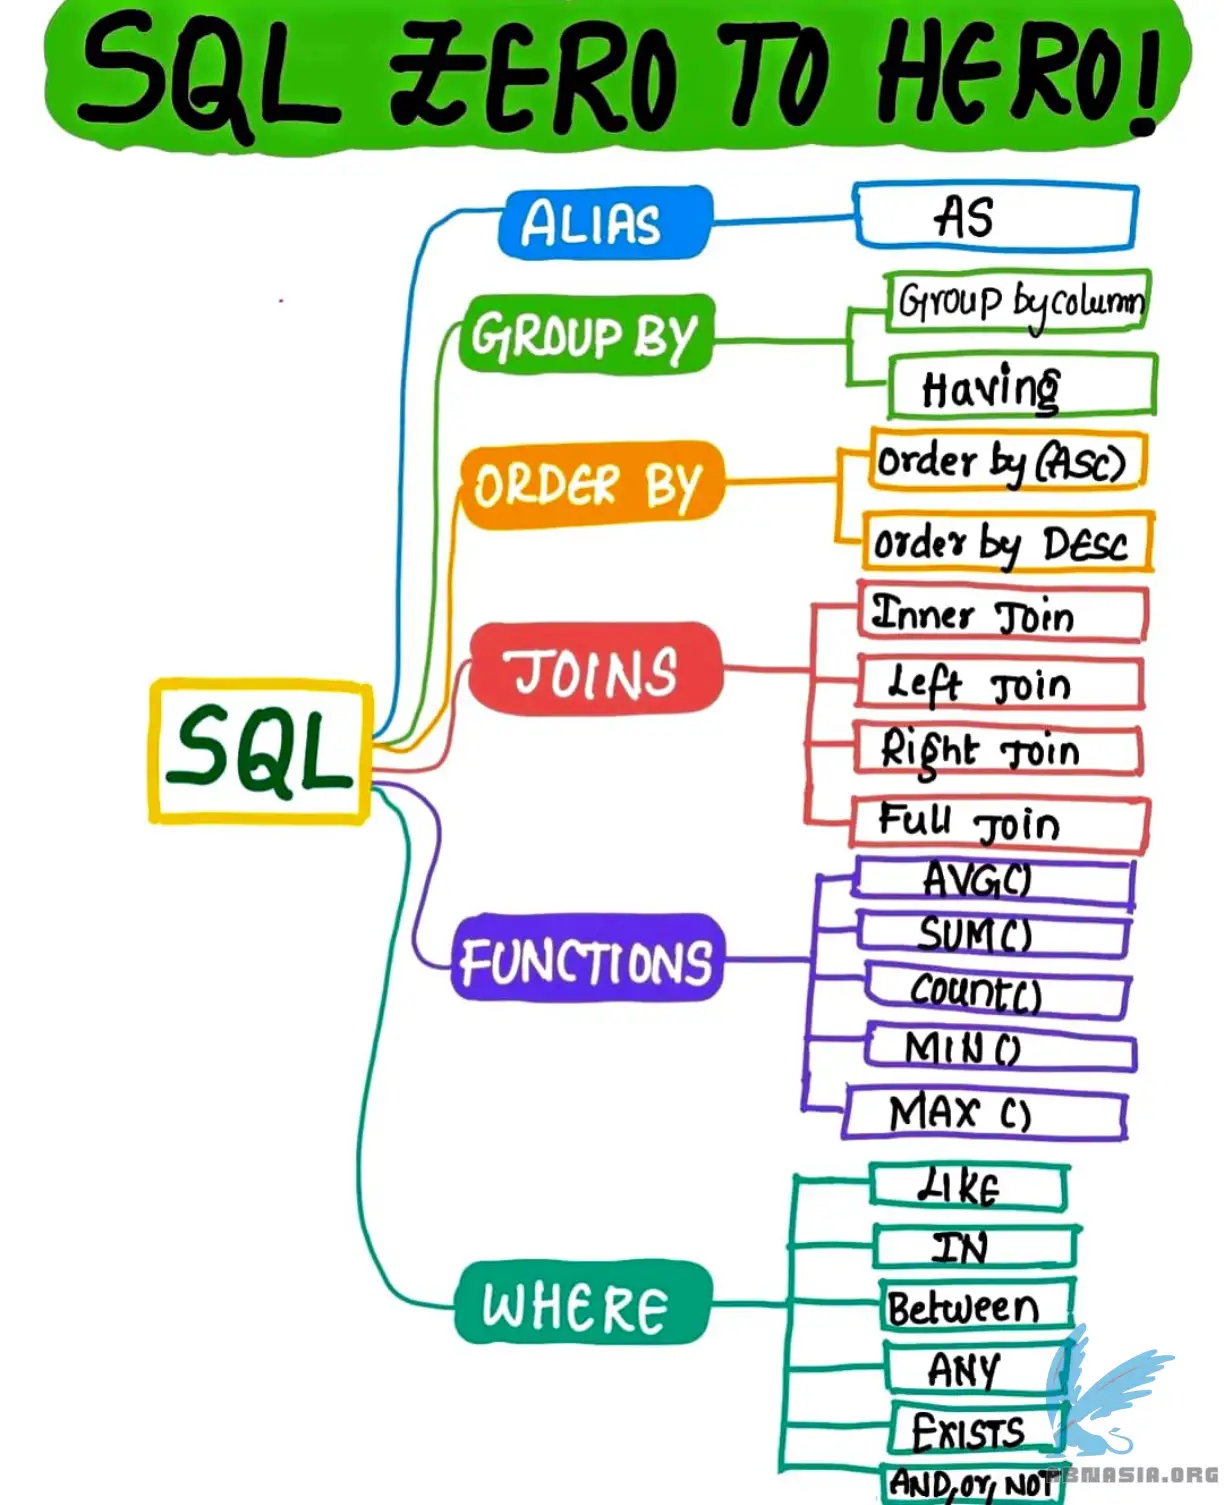 SQL ZERO TO HERO!
ALIAS
AS
GROUP BY
Group by column
Having
ORDER BY
order by (ASC)
order by DESC
JOINS
Inner Join
Left Join
Right Join
Full Join
SQL
FUNCTIONS
AVG()
SUM()
Count()
MIN()
MAX ()
WHERE
LIKE
IN
Between
ANY
EXISTS
AND, or, NOT
ABNASIA.ORG